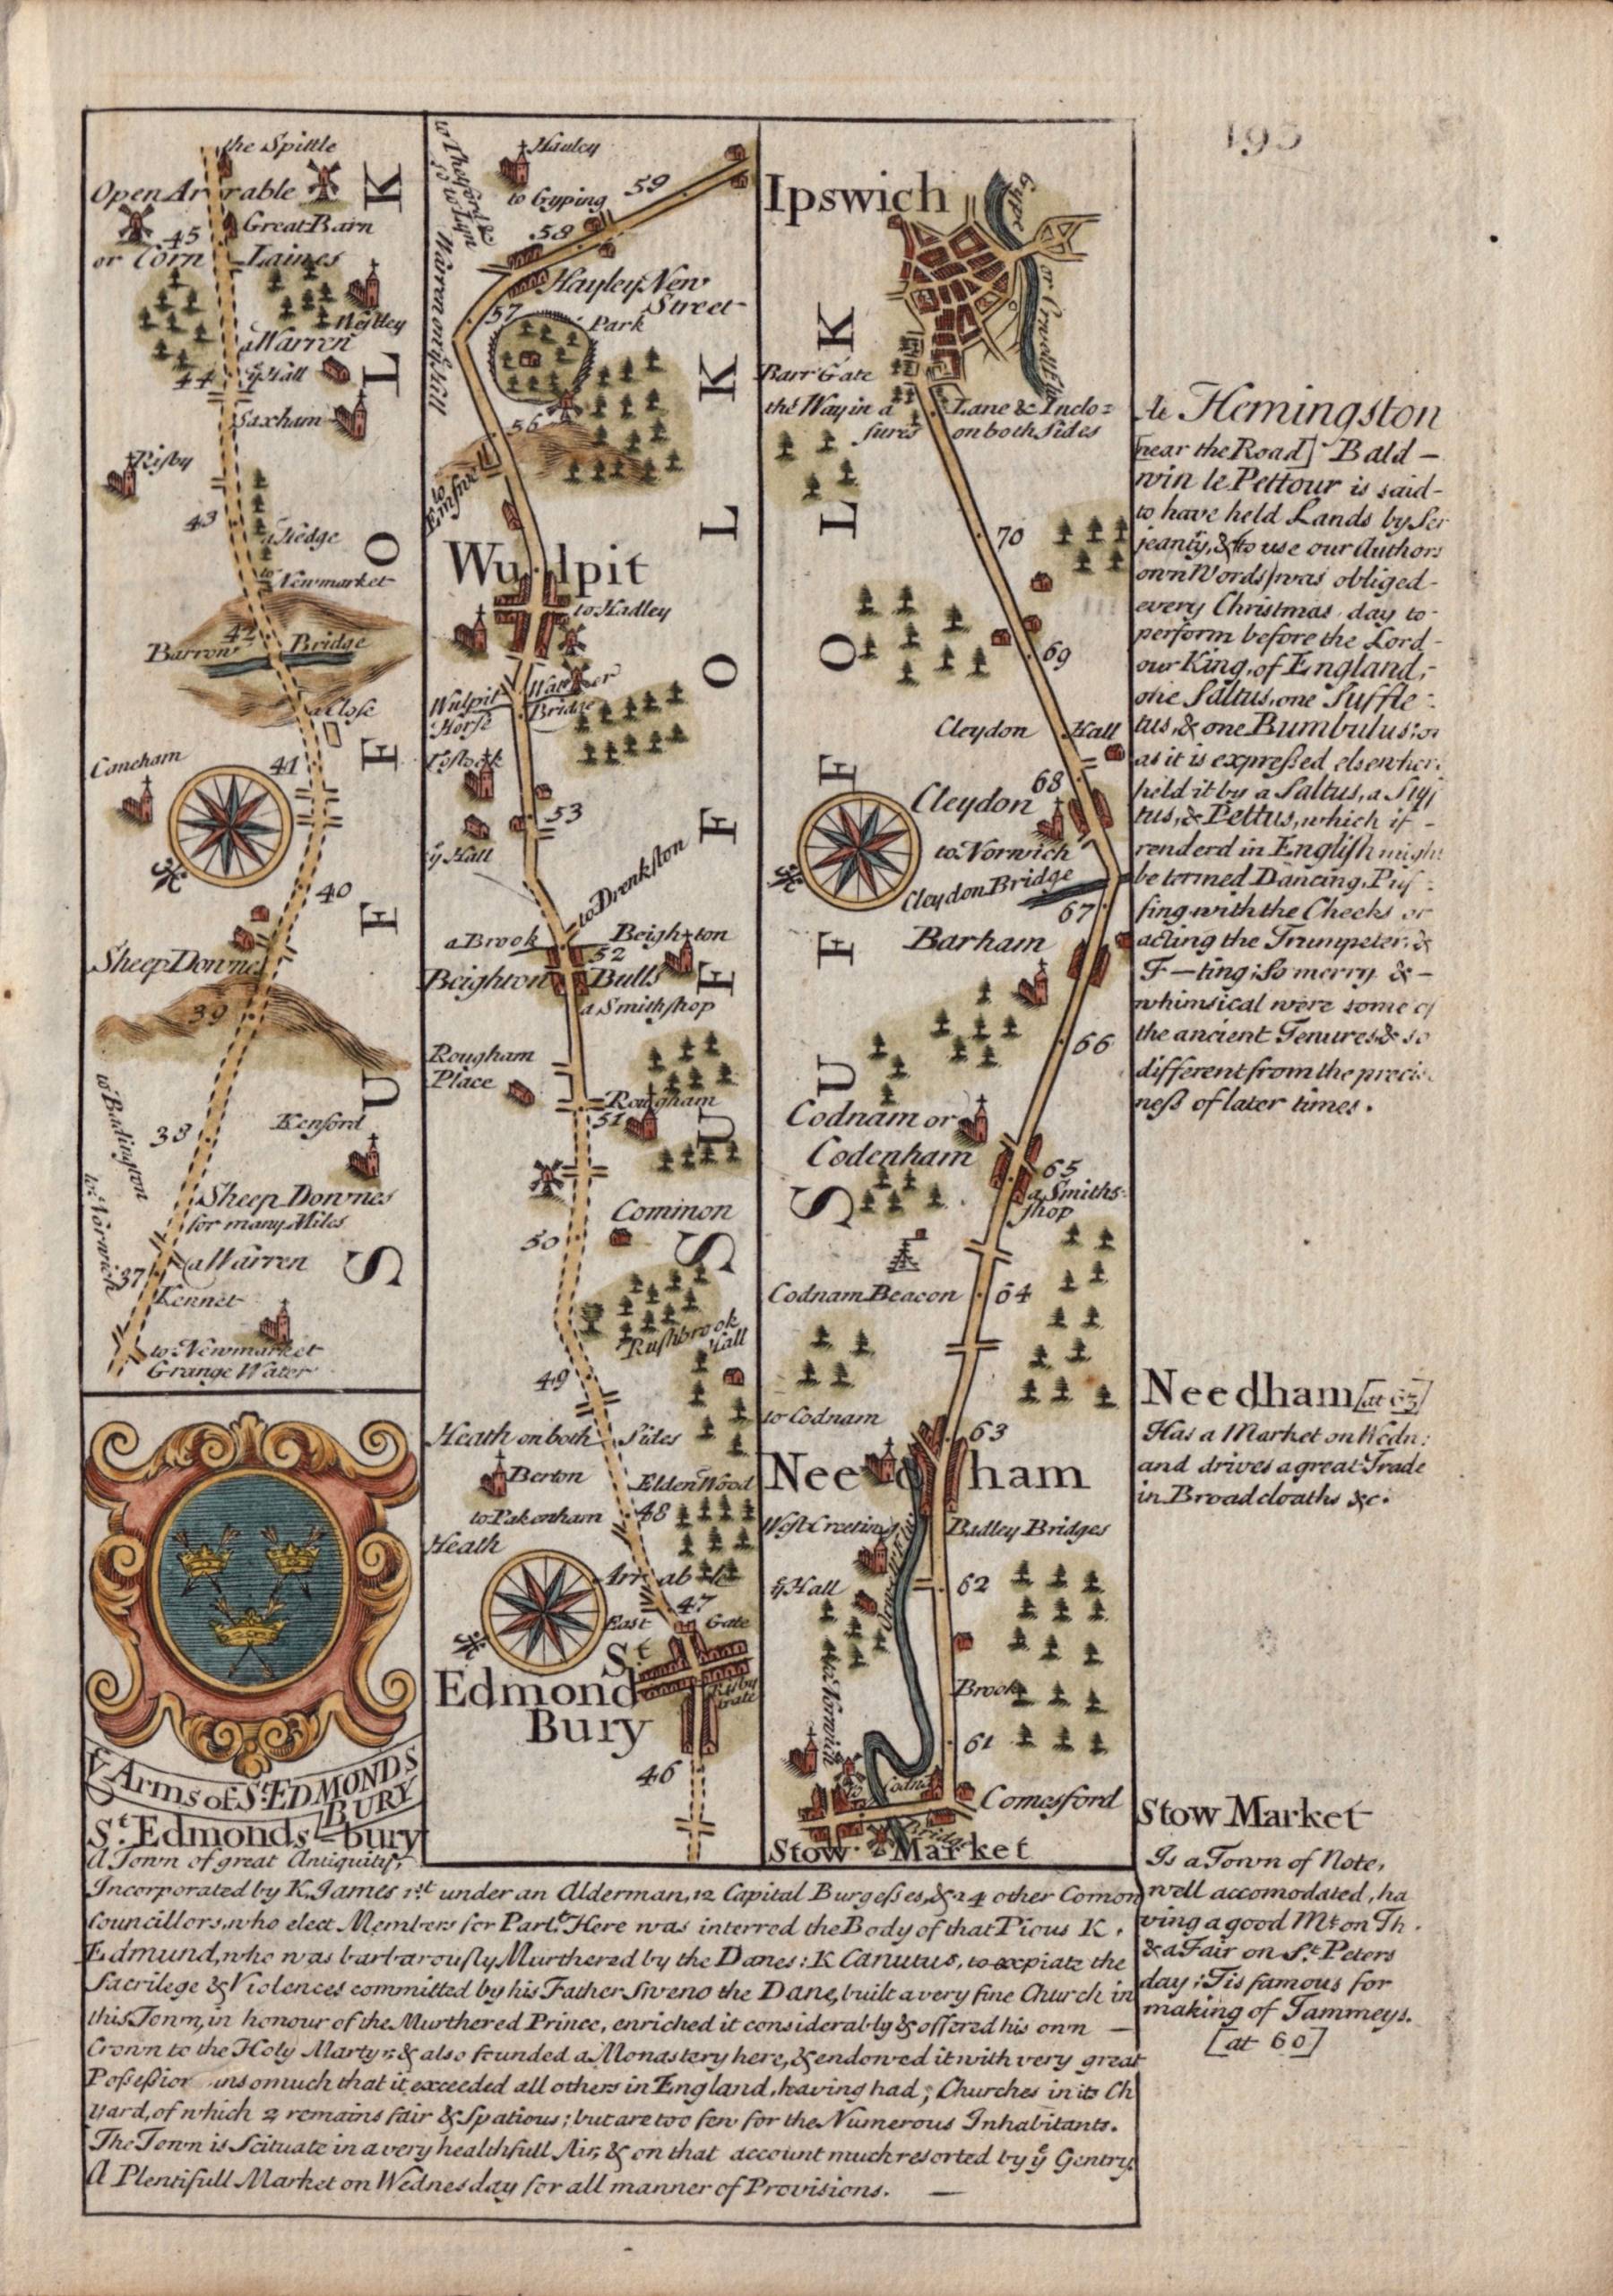 195
the Spittle
Open Ar rable
Great Barn
45
or Corn Laines
Westley
a Warren
44
ye Hall
Saxham
Risby
43
a Hedge
to Newmarket
42
Barrow Bridge
a Close
Caneham
41
40
Sheep Downes
39
to Badington
38
Kenford
to Norwich
Sheep Downes
for many Miles
a Warren
37
Kennet
to Newmarket
Grange Water
SUFFOLK
Ye Arms of St. EDMONDS
BURY
to Thetford &
to Lyn
Hauley
59
to Gyping
58
Warren on ye Hill
Hayley New
Street
57
Park
56
to Emsne
Wulpit
to Hadley
Wulpit
Horse
Water
Bridge
Tostock
53
ye Hall
to Drenkston
a Brook
Beighton
52
Beighton Bulls
a Smith shop
Rougham
Place
Rougham
51
Common
50
Rushbrook
Hall
49
Heath on both Sides
Berton
Elden Wood
to Pakenham
48
Heath
Arrable
47
East Gate
St.
Edmond
Bury
Risby
Gate
46
SUFFOLK
Ipswich
Gype
or Orwell flu
Barr Gate
the Way in a Lane & Inclo=
sures on both sides
70
69
Cleydon Hall
68
Cleydon
to Norwich
Cleydon Bridge
67
Barham
66
Codnam or
Codenham
65
a Smiths
shop
Codnam Beacon
64
to Codnam
63
Needham
West Creeting
Badley Bridges
ye Hall
62
Orwell flu
Brook
to Norwich
61
Codna
Bridge
Comesford
Stow Market
SUFFOLK
At Hemingston
[near the Road] Bald-
win le Pettour is said-
to have held Lands by Ser
jeanty, & (to use our Authors
own Words) was obliged-
every Christmas day to-
perform before the Lord-
our King, of England,-
one Saltus, one Suffle-
tus, & one Bumbulus: or
as it is expressed elsewher
held it by a Saltus, a Suf
tus, & Pettus, which if-
renderd in English might
be termed Dancing, Puf-
fing with the Cheeks or
acting the Trumpeter, &
F—ting: So merry &-
whimsical were some of
the ancient Tenures & so
different from the preci
ness of later times.
Needham [at 63]
Has a Market on Wedn:
and drives a great Trade
in Broad cloaths &c.
Stow Market
Is a Town of Note,
well accomodated, ha
ving a good Mt. on Th.
& a Fair on St. Peters
day: Tis famous for
making of Tammeys.
[at 60]
St. Edmonds-bury
A Town of great Antiquity,
Incorporated by K. James 1st. under an Alderman, 12 Capital Burgesses, & 24 other Comon
Councillors, who elect Members for Parlt. Here was interred the Body of that Pious K.
Edmund, who was barbarously Murthered by the Danes: K Canutus, to expiate the
Sacrilege & Violences committed by his Father Sweno the Dane, built a very fine Church in
this Town, in honour of the Murthered Prince, enriched it considerably & offered his own —
Crown to the Holy Martyr: & also founded a Monastery here, & endowed it with very great
Possession insomuch that it exceeded all others in England, having had 3 Churches in its Ch
yard, of which 2 remains fair & Spatious; but are too few for the Numerous Inhabitants.
The Town is Scituate in a very healthfull Air, & on that account much resorted by ye Gentry.
A Plentifull Market on Wednesday for all manner of Provisions. —